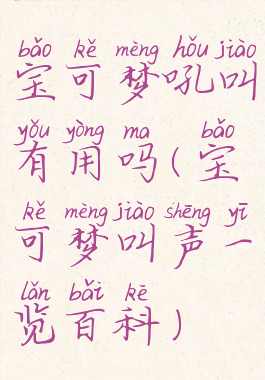 bǎo kě mèng hǒu jiào
宝可梦吼叫
yǒu yòng ma bǎo
有用吗(宝
kě mèng jiào shēng yī
可梦叫声一
lǎn bǎi kē
览百科)